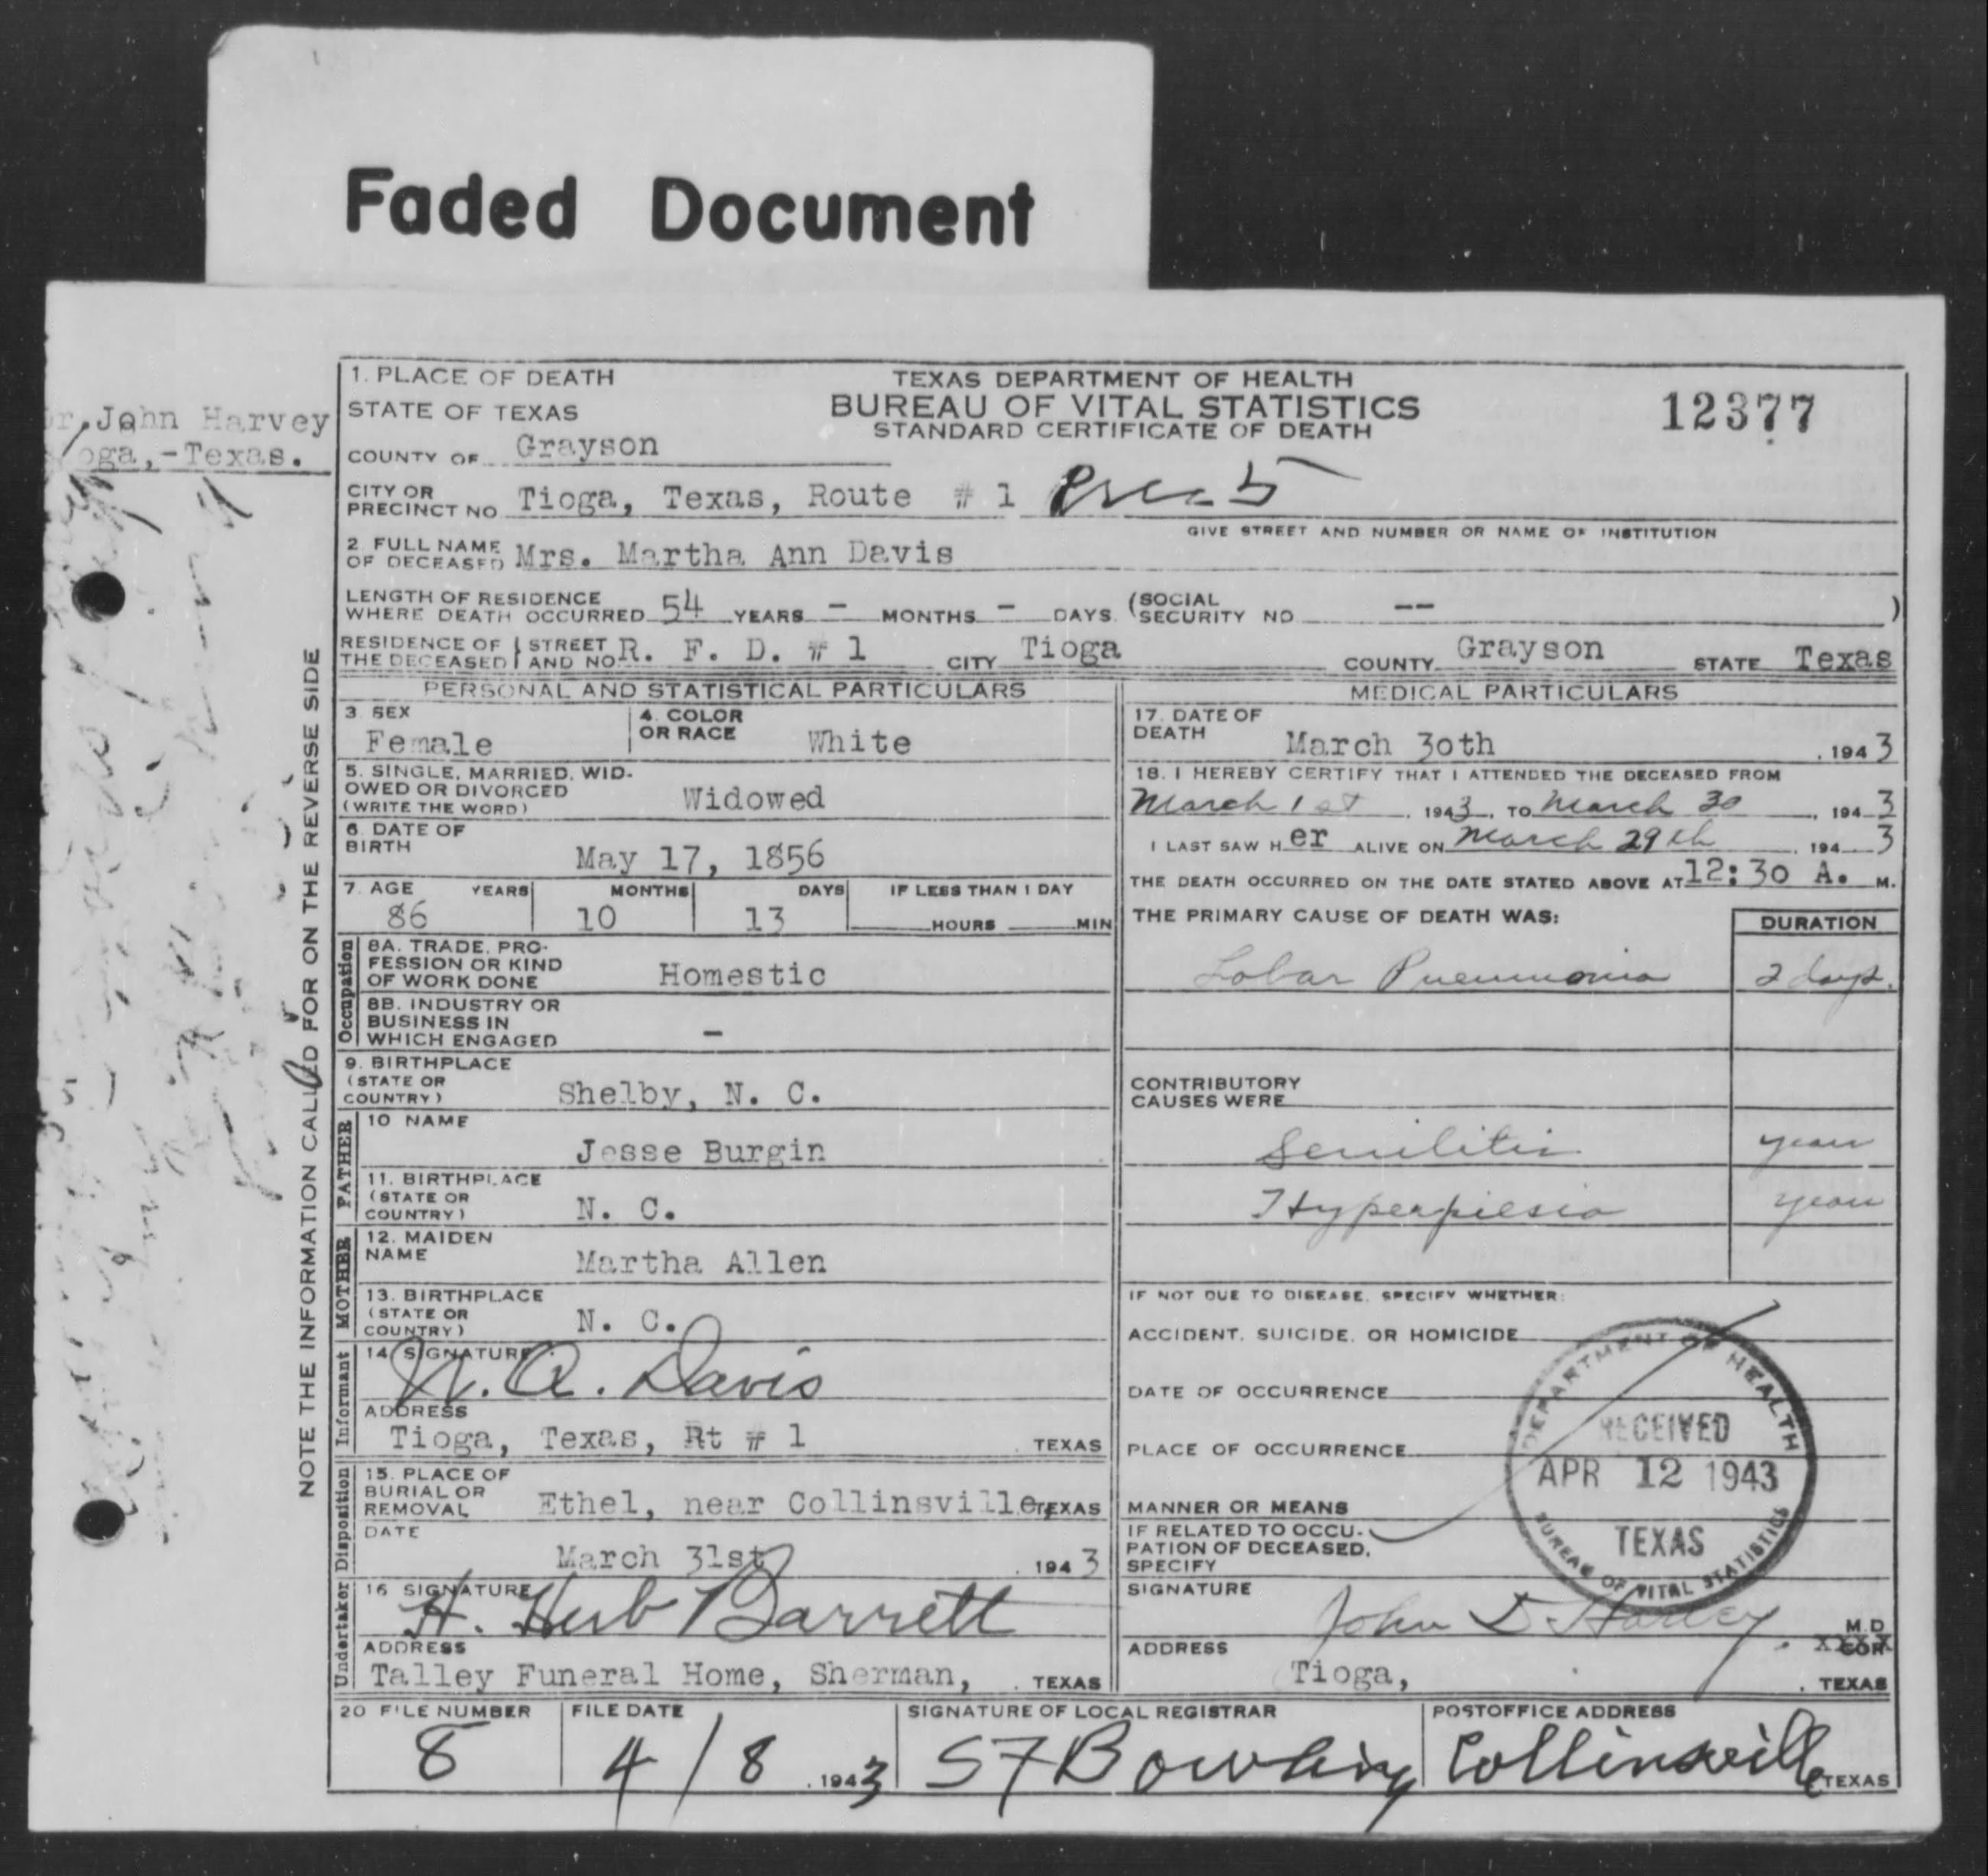 Faded Document
1. PLACE OF DEATH
TEXAS DEPARTMENT OF HEALTH
STATE OF TEXAS
BUREAU OF VITAL STATISTICS
12377
STANDARD CERTIFICATE OF DEATH
John Harvey
oga,-Texas.
COUNTY OF Grayson
CITY OR PRECINCT NO Tioga, Texas, Route # 1 Prec 5
GIVE STREET AND NUMBER OR NAME OF INSTITUTION
2 FULL NAME OF DECEASED Mrs. Martha Ann Davis
LENGTH OF RESIDENCE WHERE DEATH OCCURRED 54 YEARS - MONTHS - DAYS. (SOCIAL SECURITY NO -- )
RESIDENCE OF THE DECEASED STREET AND NO. R. F. D. # 1 CITY Tioga COUNTY Grayson STATE Texas
NOTE THE INFORMATION CALLED FOR ON THE REVERSE SIDE
PERSONAL AND STATISTICAL PARTICULARS
3 SEX Female
4. COLOR OR RACE White
5. SINGLE, MARRIED, WID-
OWED OR DIVORCED Widowed
(WRITE THE WORD)
6. DATE OF BIRTH May 17, 1856
7. AGE YEARS MONTHS DAYS IF LESS THAN 1 DAY
86 10 13 HOURS MIN
Occupation
8A. TRADE, PRO-
FESSION OR KIND
OF WORK DONE Homestic
8B. INDUSTRY OR
BUSINESS IN
WHICH ENGAGED -
9. BIRTHPLACE
(STATE OR
COUNTRY) Shelby, N. C.
FATHER
10 NAME Jesse Burgin
11. BIRTHPLACE
(STATE OR
COUNTRY) N. C.
MOTHER
12. MAIDEN NAME Martha Allen
13. BIRTHPLACE
(STATE OR
COUNTRY) N. C.
Informant
14 SIGNATURE A. Davis
ADDRESS
Tioga, Texas, Rt # 1 TEXAS
Disposition
15. PLACE OF
BURIAL OR
REMOVAL Ethel, near Collinsville TEXAS
DATE March 31st 1943
Undertaker
16 SIGNATURE H. Herb Barrett
ADDRESS
Talley Funeral Home, Sherman, TEXAS
MEDICAL PARTICULARS
17. DATE OF DEATH March 30th, 1943
18. I HEREBY CERTIFY THAT I ATTENDED THE DECEASED FROM
March 1st, 1943, TO March 30, 1943
I LAST SAW HER ALIVE ON March 29th, 1943
THE DEATH OCCURRED ON THE DATE STATED ABOVE AT 12:30 A. M.
THE PRIMARY CAUSE OF DEATH WAS: DURATION
Lobar Pneumonia 2 days.
CONTRIBUTORY
CAUSES WERE
years
Hyperpiesia years
IF NOT DUE TO DISEASE, SPECIFY WHETHER:
ACCIDENT, SUICIDE, OR HOMICIDE
DATE OF OCCURRENCE
PLACE OF OCCURRENCE
MANNER OR MEANS
IF RELATED TO OCCU-
PATION OF DECEASED,
SPECIFY
DEPARTMENT OF HEALTH
RECEIVED
APR 12 1943
TEXAS
BUREAU OF VITAL STATISTICS
SIGNATURE John D. Harvey M.D
COR
ADDRESS Tioga, TEXAS
20 FILE NUMBER 8
FILE DATE 4/8, 1943
SIGNATURE OF LOCAL REGISTRAR S F Bowling
POSTOFFICE ADDRESS Collinsville TEXAS